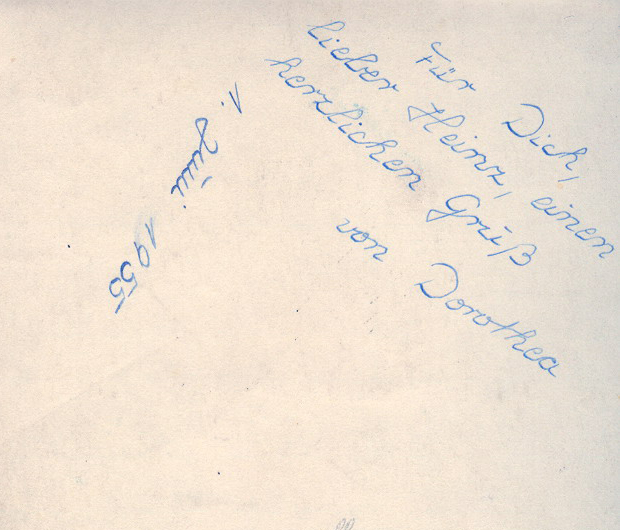 Für Dich,
lieber Heinz, einen
herzlichen Gruß
von Dorothea
1. Juni 1955